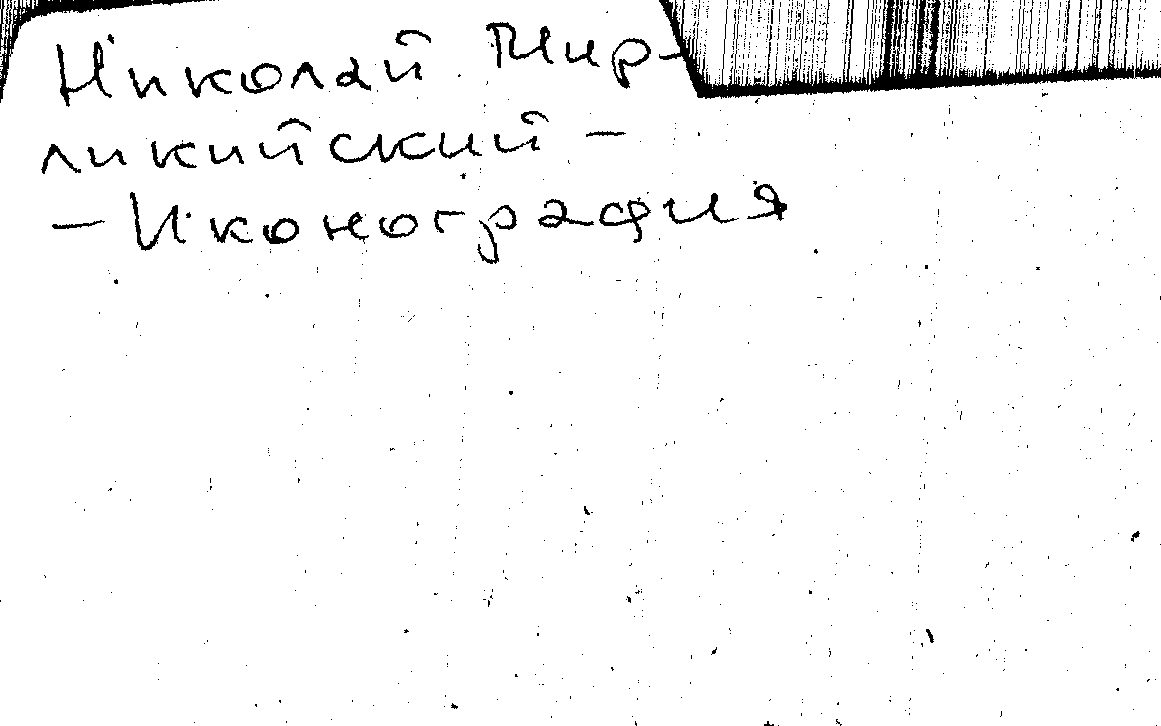 Николай Мир-
ликийский –
– Иконография